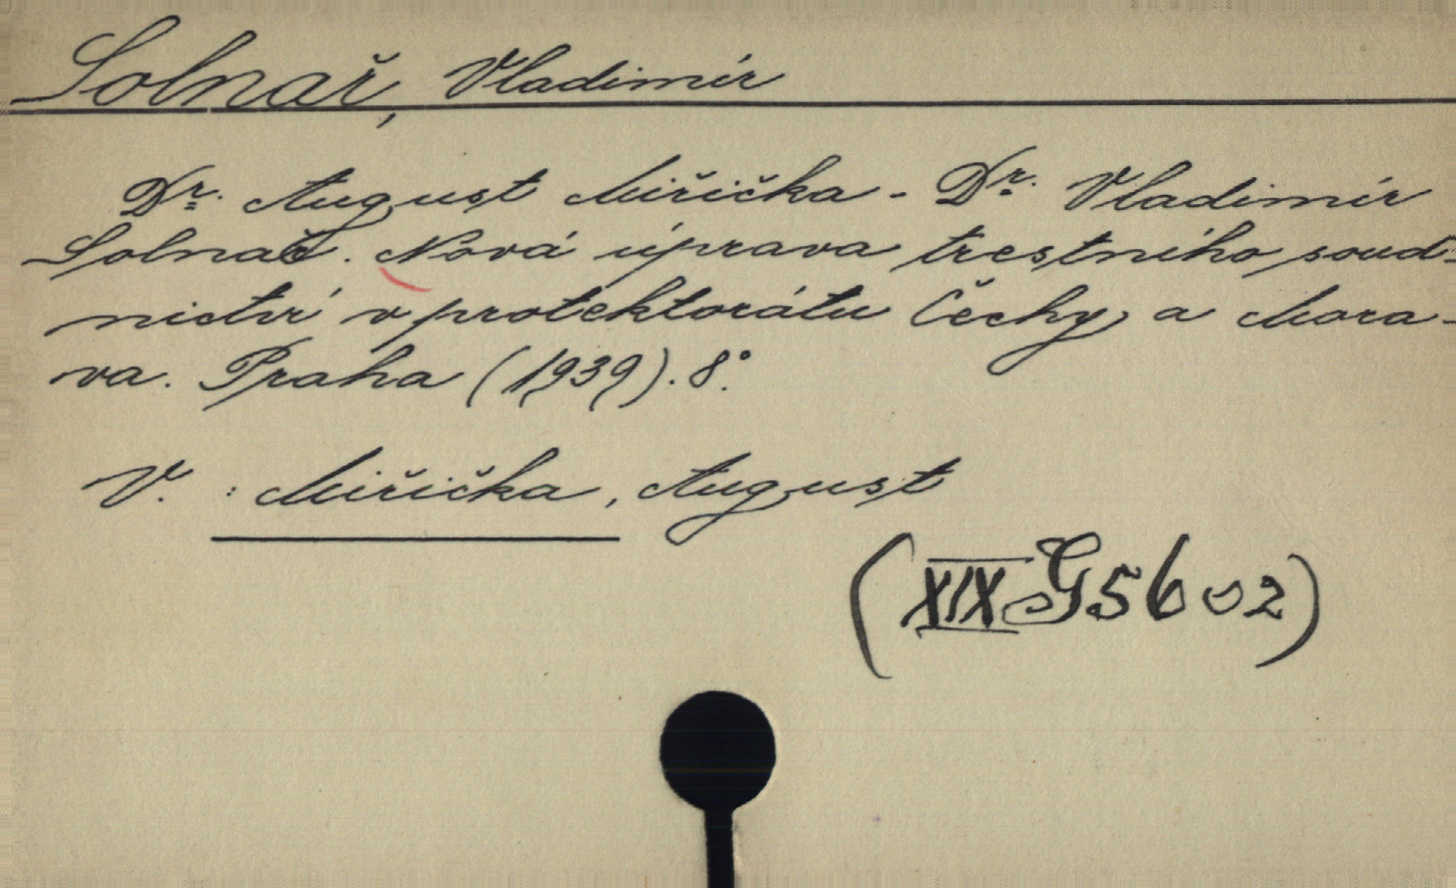 Solnař, Vladimír
Dr. August Miřička - Dr. Vladimír
Solnař. Nová úprava trestního soud-
nictví v protektorátu Čechy a Mora-
va. Praha (1939). 8°.
V. : Miřička, August
(XIX G 5602)